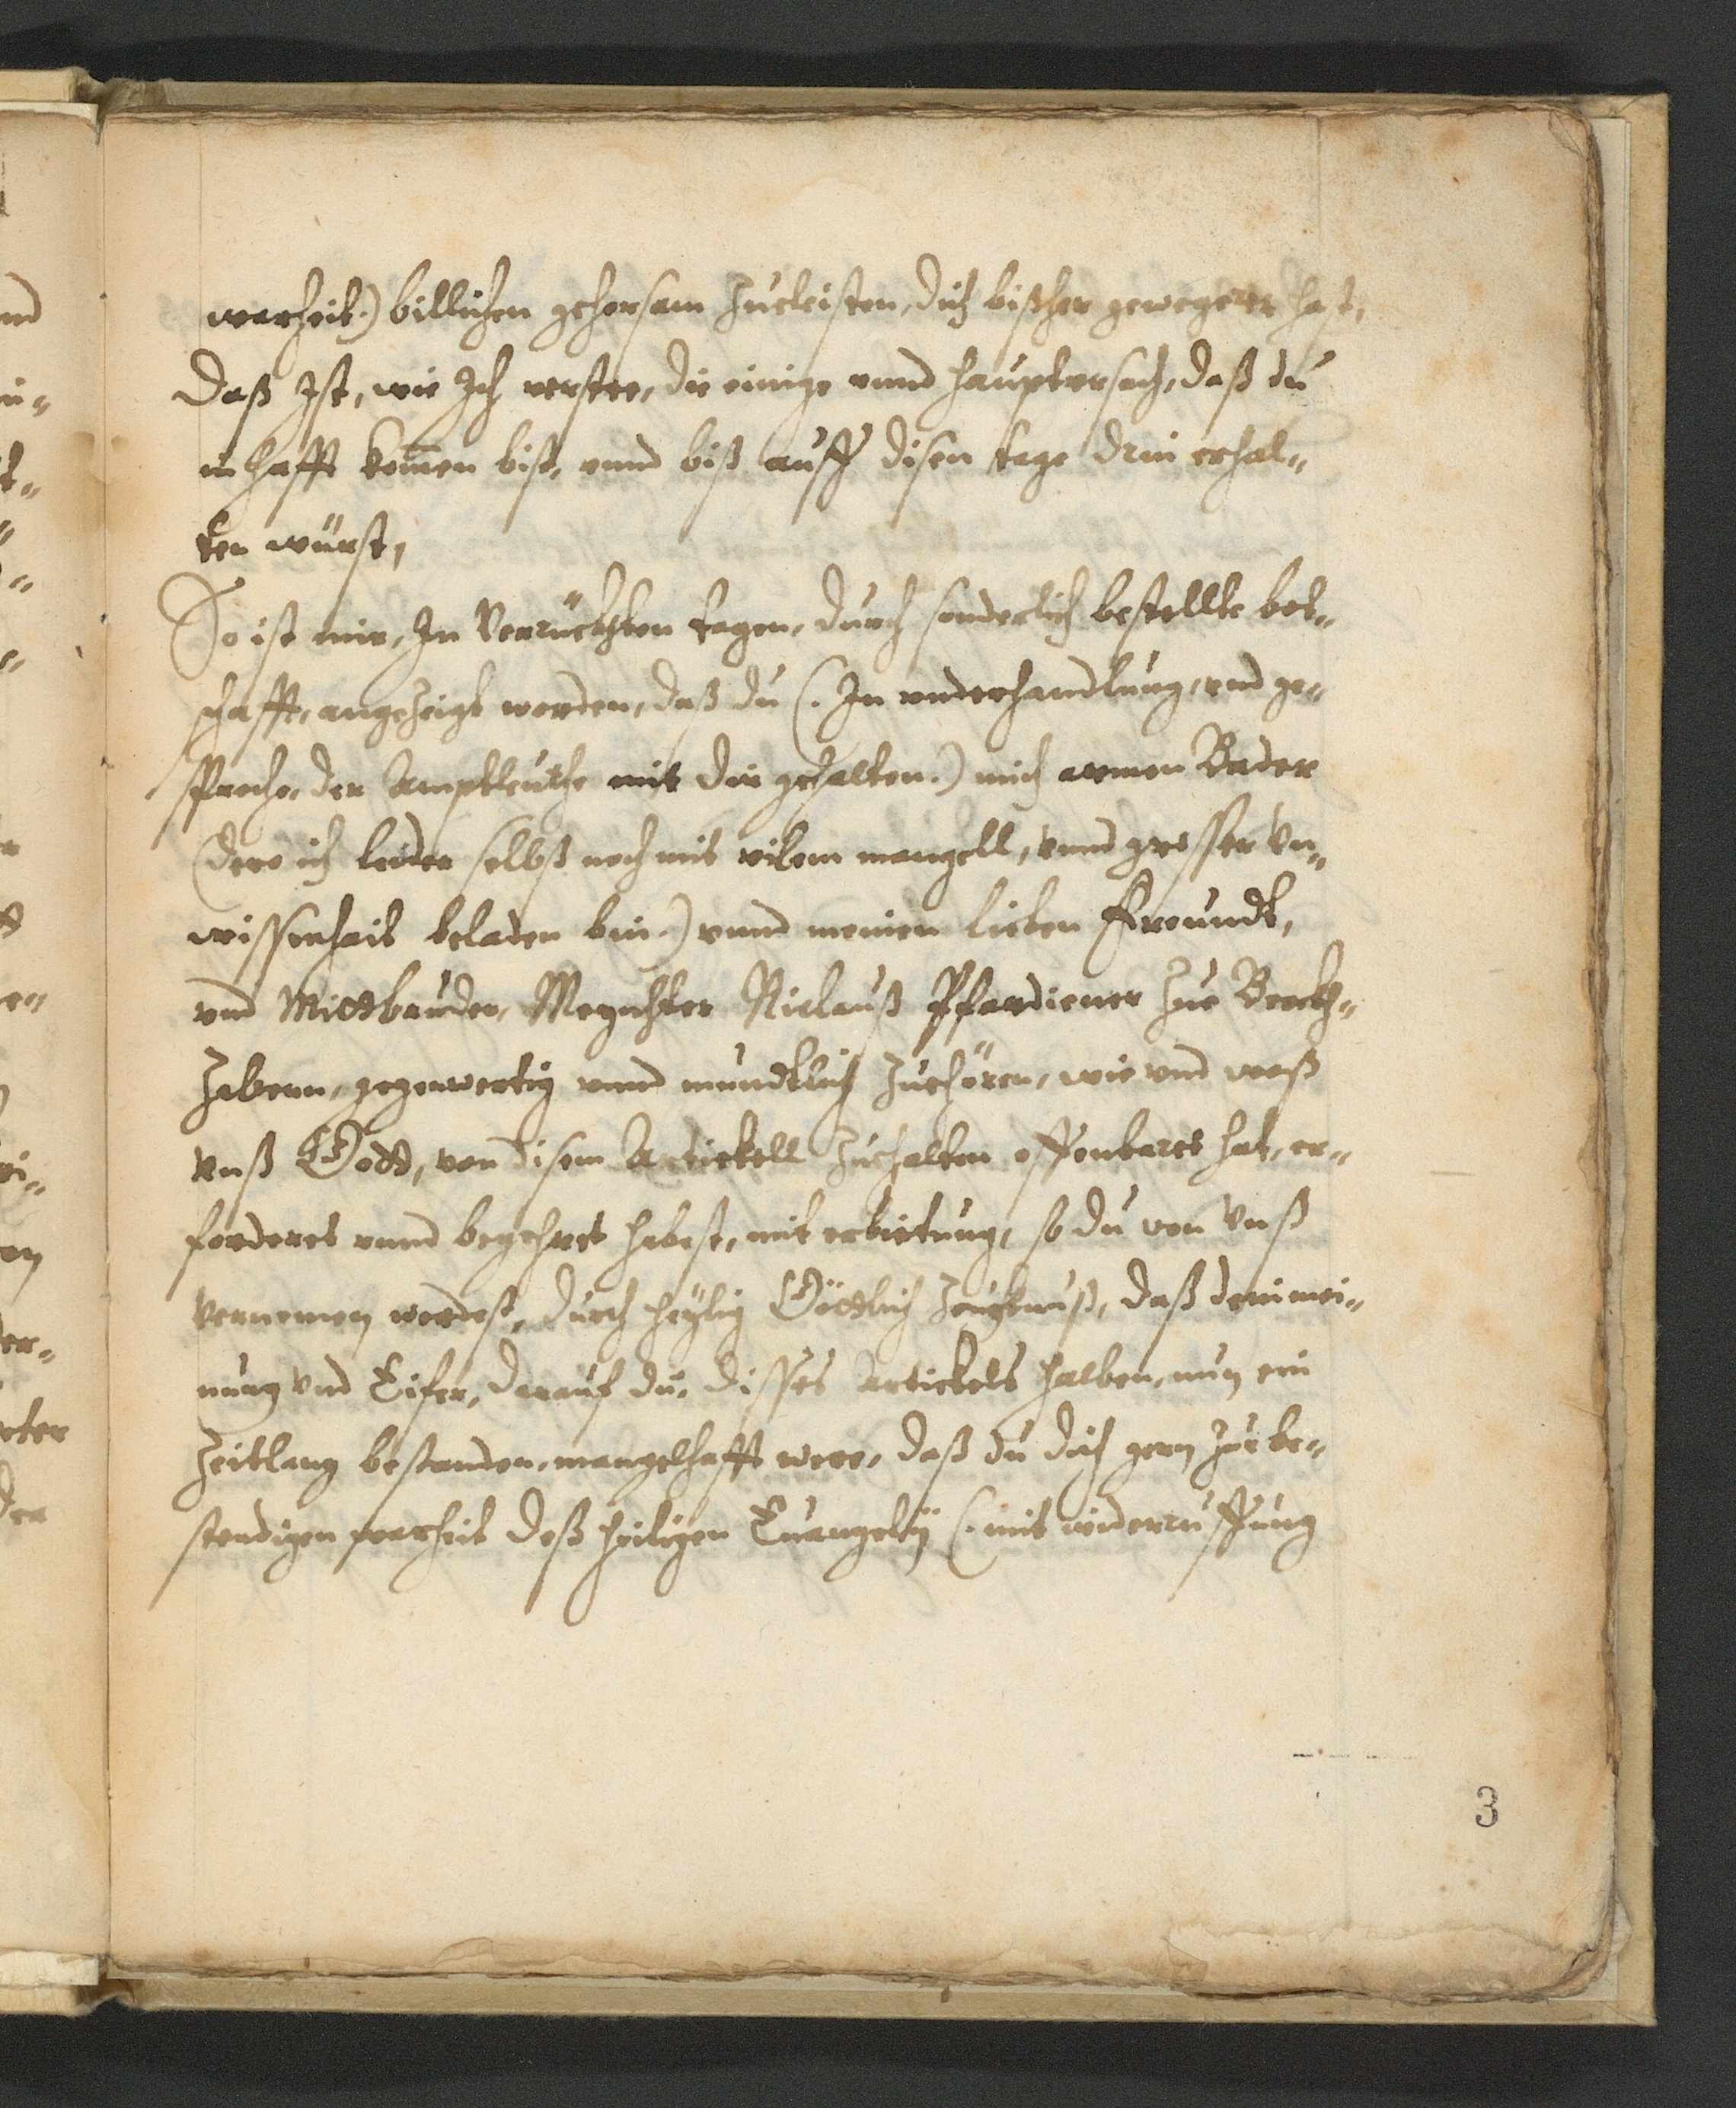 warheit.) billichen gehorsam zuleisten, dich bißher gewegeret hast,
Daß Ist, wie Ich verstee, die einige vnnd hauptursach, daß du
in hafft komen bist, vnnd biß auff disen tage drin erhal„
ten würst,
So ist mir, In Verrückhten tagen, durch sonderlich bestellte bot„
schafft, angezeigt worden, daß du (. In vnderhandlung, vnd ge„
sprech, der Amptleuthe mit dir gehalten.) mich armen Bader
(der ich leider selbß noch mit vilem mangell, vnnd grosser Vn„
wissenheit beladen bin.) vnnd meinen lieben Freundt,
vnd Mittbruder, Meyster Niclauß Pfardiener zue Berckh„
zabern, gegenwertig vnnd mundtlich zuhören, wie vnd waß
vnß Gott, von disem Artickell zuhalten offenbaret hat, er„
forderet vnnd begehret habest, mit erbietung, so du von Vnß
vernemen werdest, durch heylig Göttlich zeugknuß, daß dein mei„
nung vnd Eifer, darauf du, disses Artickels halben, nun ein
zeitlang bestanden, mangelhafft were, daß du dich gern zur be„
stendigen warheit deß heiligen Euangelÿ (. mit widerruffung
3